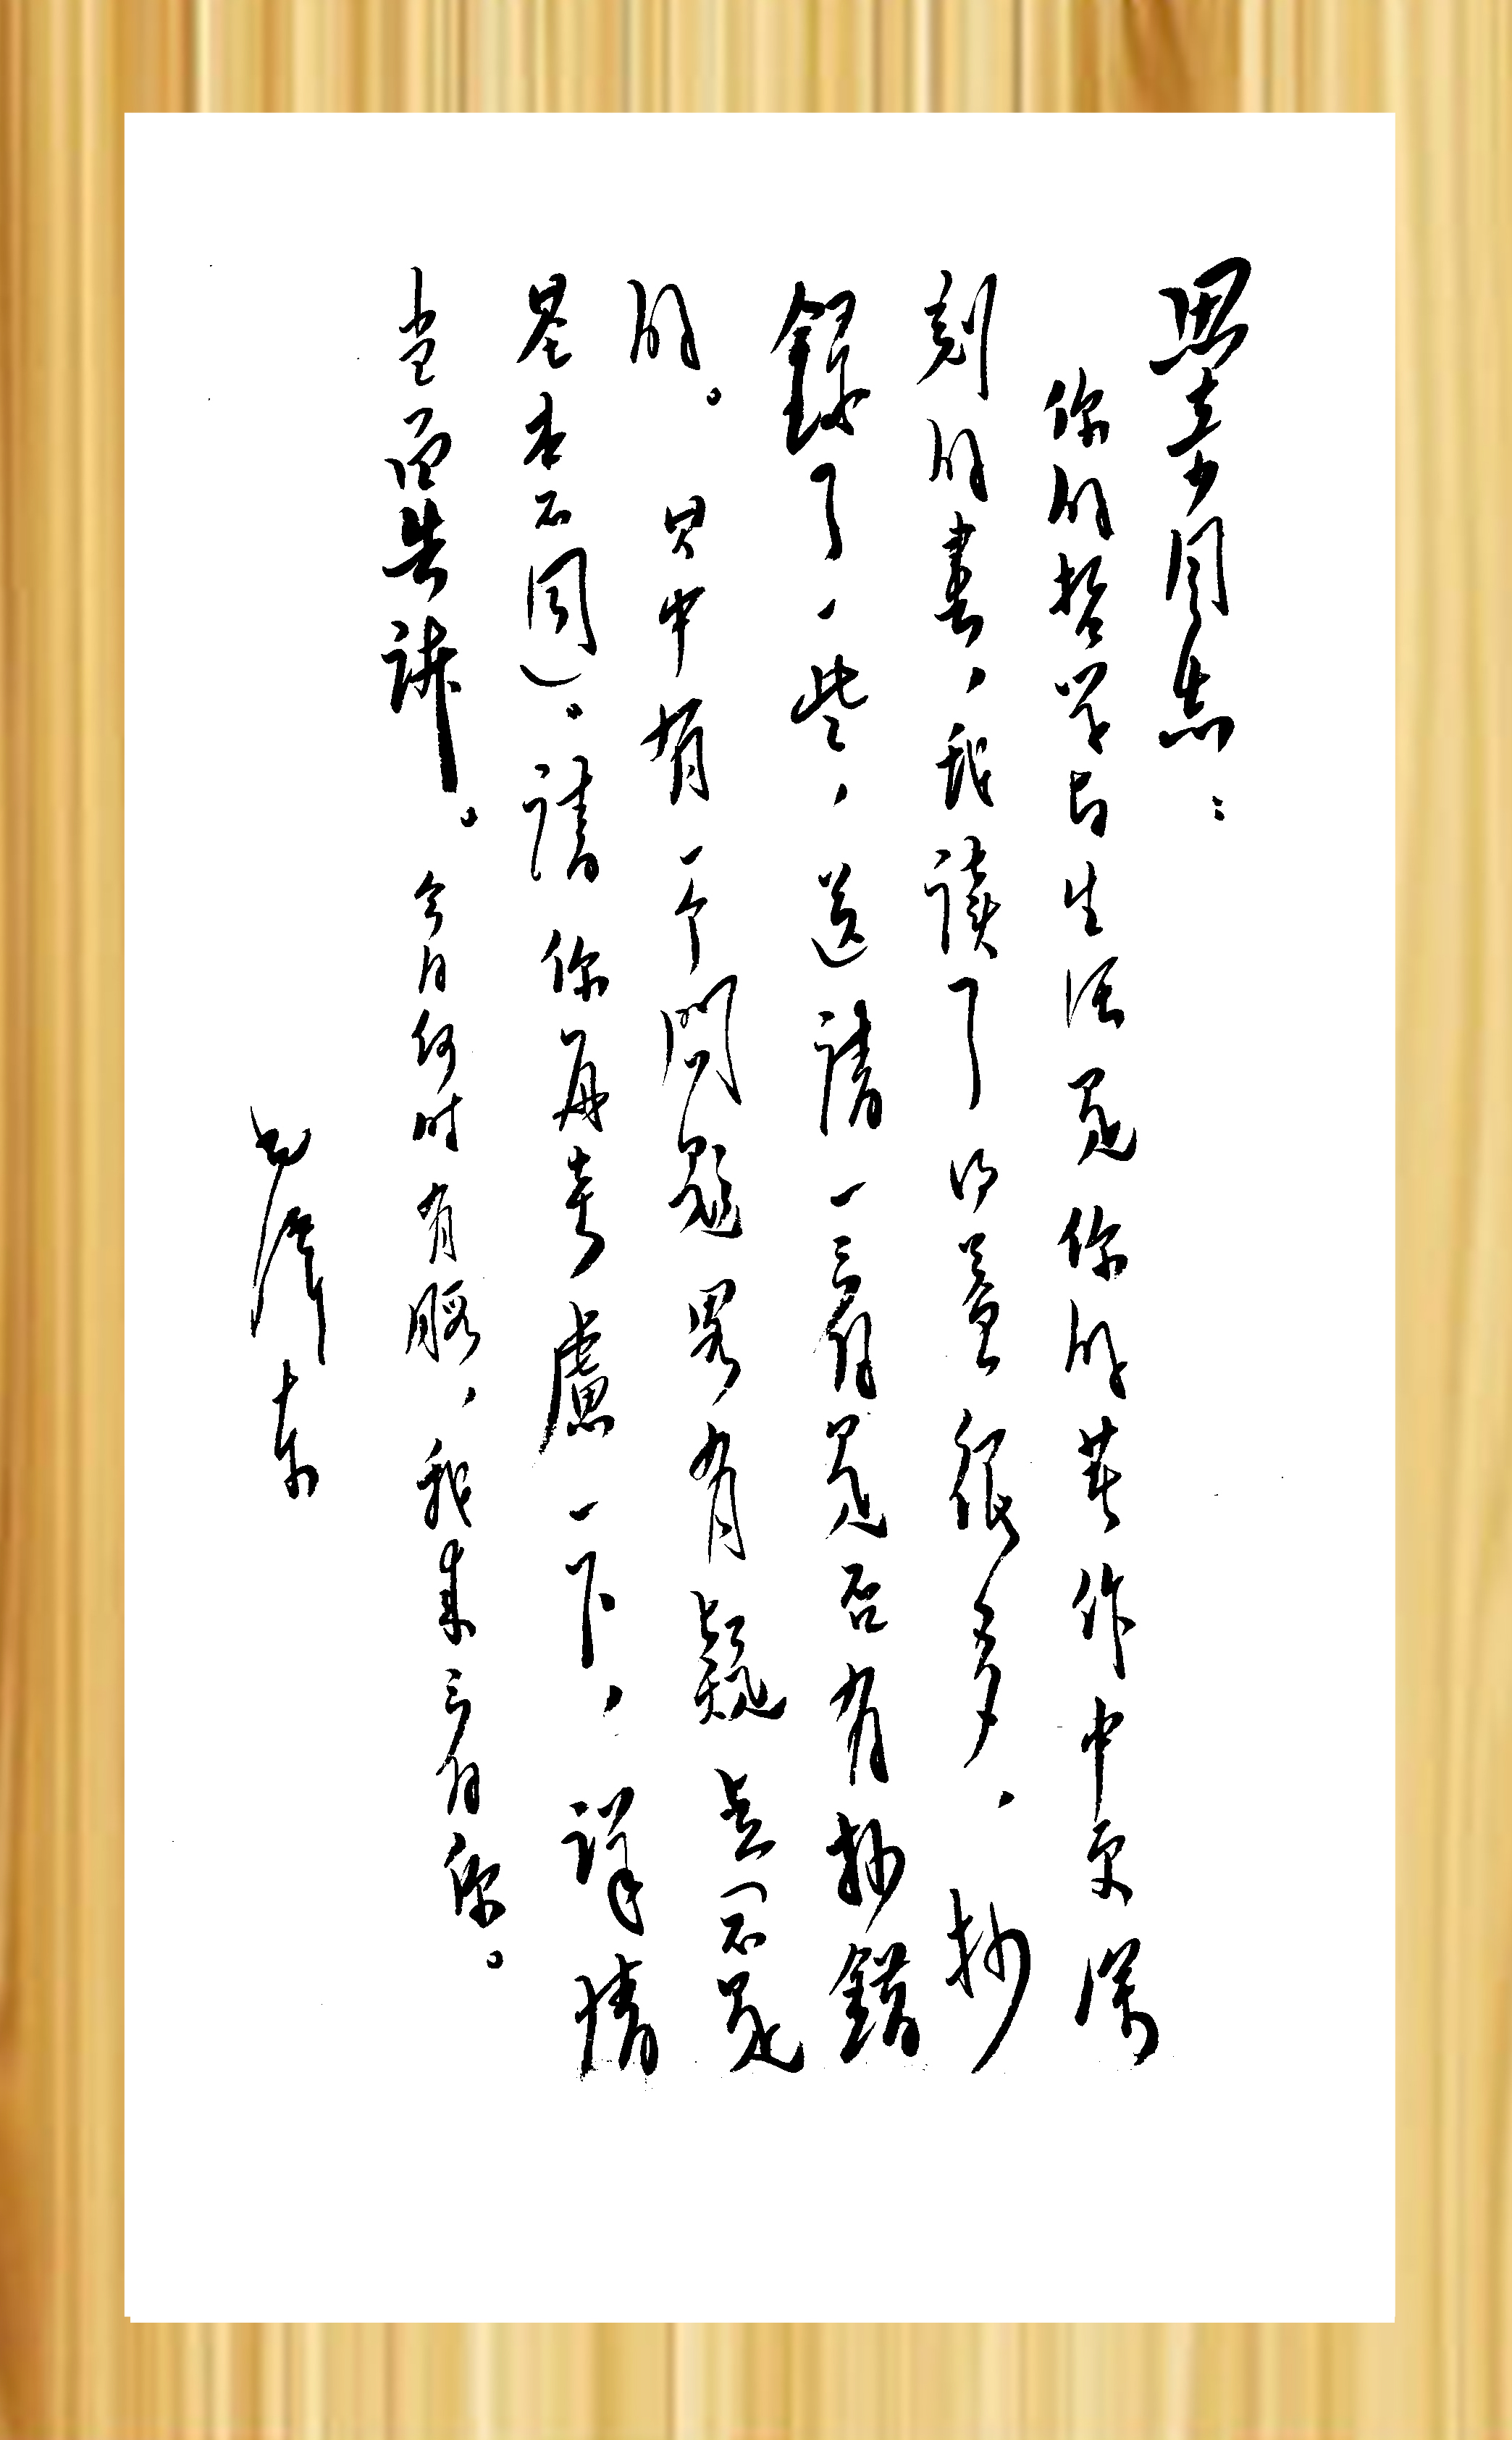 思奇同志：
你的哲学与生活是你的著作中更深
刻的书，我读了得益很多，抄
錄了一些，送請一看是否有抄錯
的。只中有一个問題畧有疑点（不是
基本不同）。請你再考慮一下，詳情
当面告訴。今日何时有暇，我来看你。
毛澤东